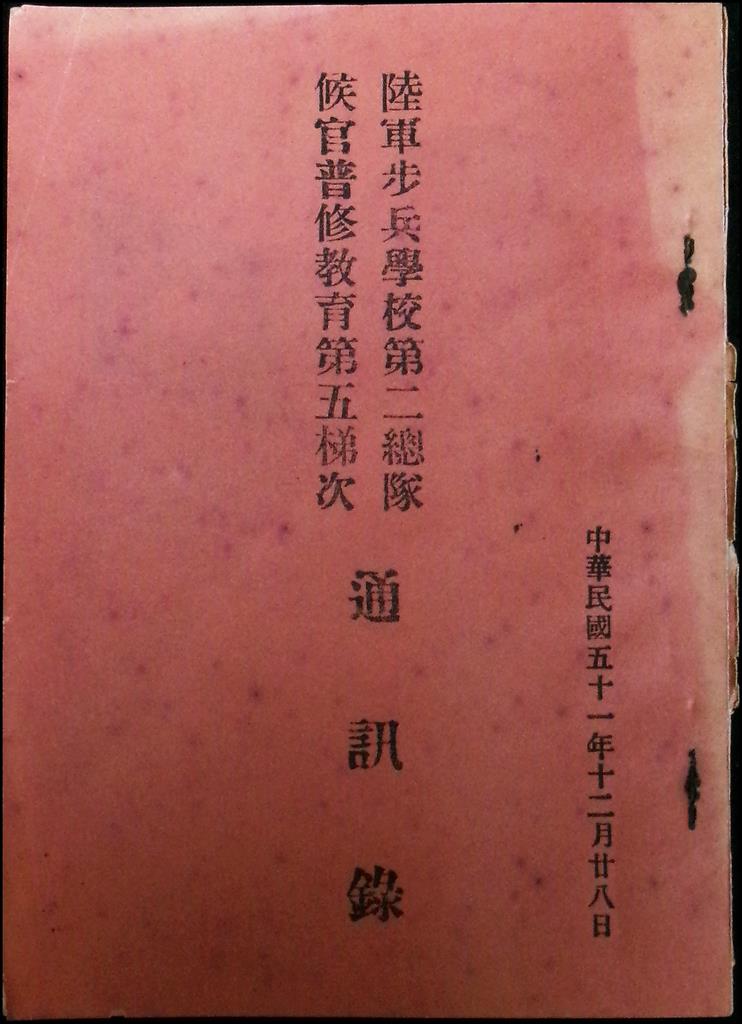 中華民國五十一年十二月廿八日
陸軍步兵學校第二總隊
候官普修教育第五梯次
通訊錄